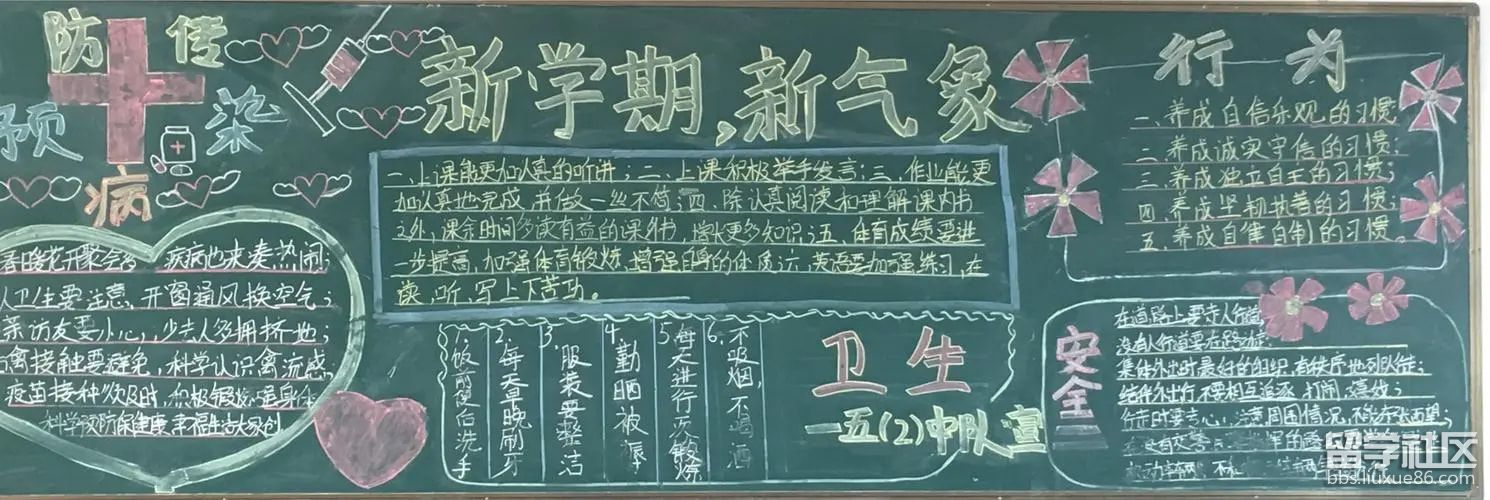 预防传染病
春暖花开聚会多 疾病也来凑热闹;
人卫生要注意,开窗通风换空气;
亲访友要小心,少去人多拥挤地;
禽接触要避免,科学认识禽流感,
疫苗接种 及时,积极锻炼强身体
科学预防保健康 幸福生活大家创
新学期,新气象
一、上课能更加认真的听讲;二、上课积极举手发言;三、作业能更
加认真地完成,并做一丝不苟;四、除认真阅读和理解课内书
之外,课余时间多读有益的课外书,增长更多知识;五、体育成绩要进
一步提高,加强体育锻炼,增强自身的体质;六、英语要加强练习,在
读、听、写上下苦功。
1.饭前便后洗手
2.每天早晚刷牙
3.服装要整洁
4.勤晒被褥
5.每天进行 次锻炼
6.不吸烟,不喝酒
卫生
一五(2)中队宣
行为
一、养成自信乐观的习惯
二、养成诚实守信的习惯;
三、养成独立自主的习惯;
四、养成坚韧执着的习惯;
五、养成自律自制的习惯。
安全
在道路上要走人行道
没有人行道要在路
集体外出时最好的组织,有秩序地列队行;
结伴外出行 不要相互追逐、打闹、嬉戏;
行走时要专心,注意周围情况,不能东张西望;
留学社区
bbs.liuxue86.com